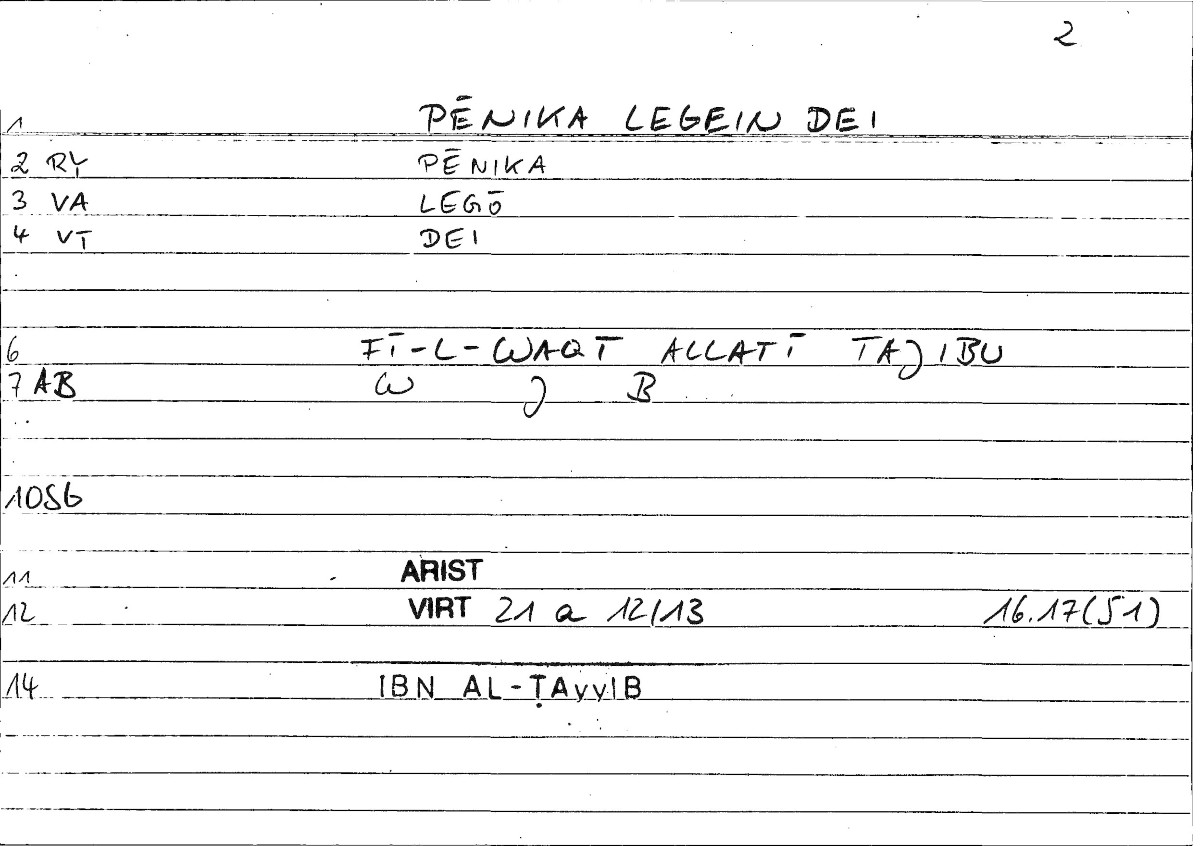 2
1 PĒNIKA LEGEIN DEI
2 RY PĒNIKA
3 VA LEGŌ
4 VT DEI
6 FĪ-L-WAQT ALLATĪ TAJIBU
7 AB W J B
10SG
11 ARIST
12 VIRT 21 a 12/13 16.17(51)
14 IBN AL-ṬAyyIB